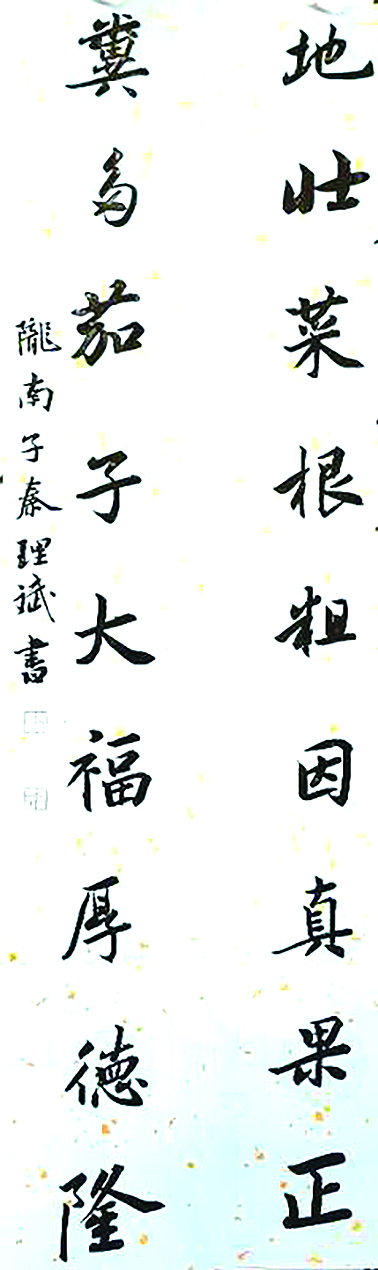 地壮菜根粗因真果正
糞多茄子大福厚德隆
隴南子秦理斌書